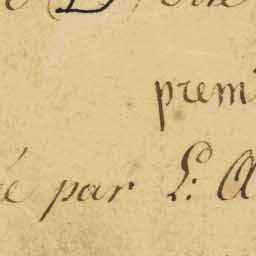 prem
é par L: A